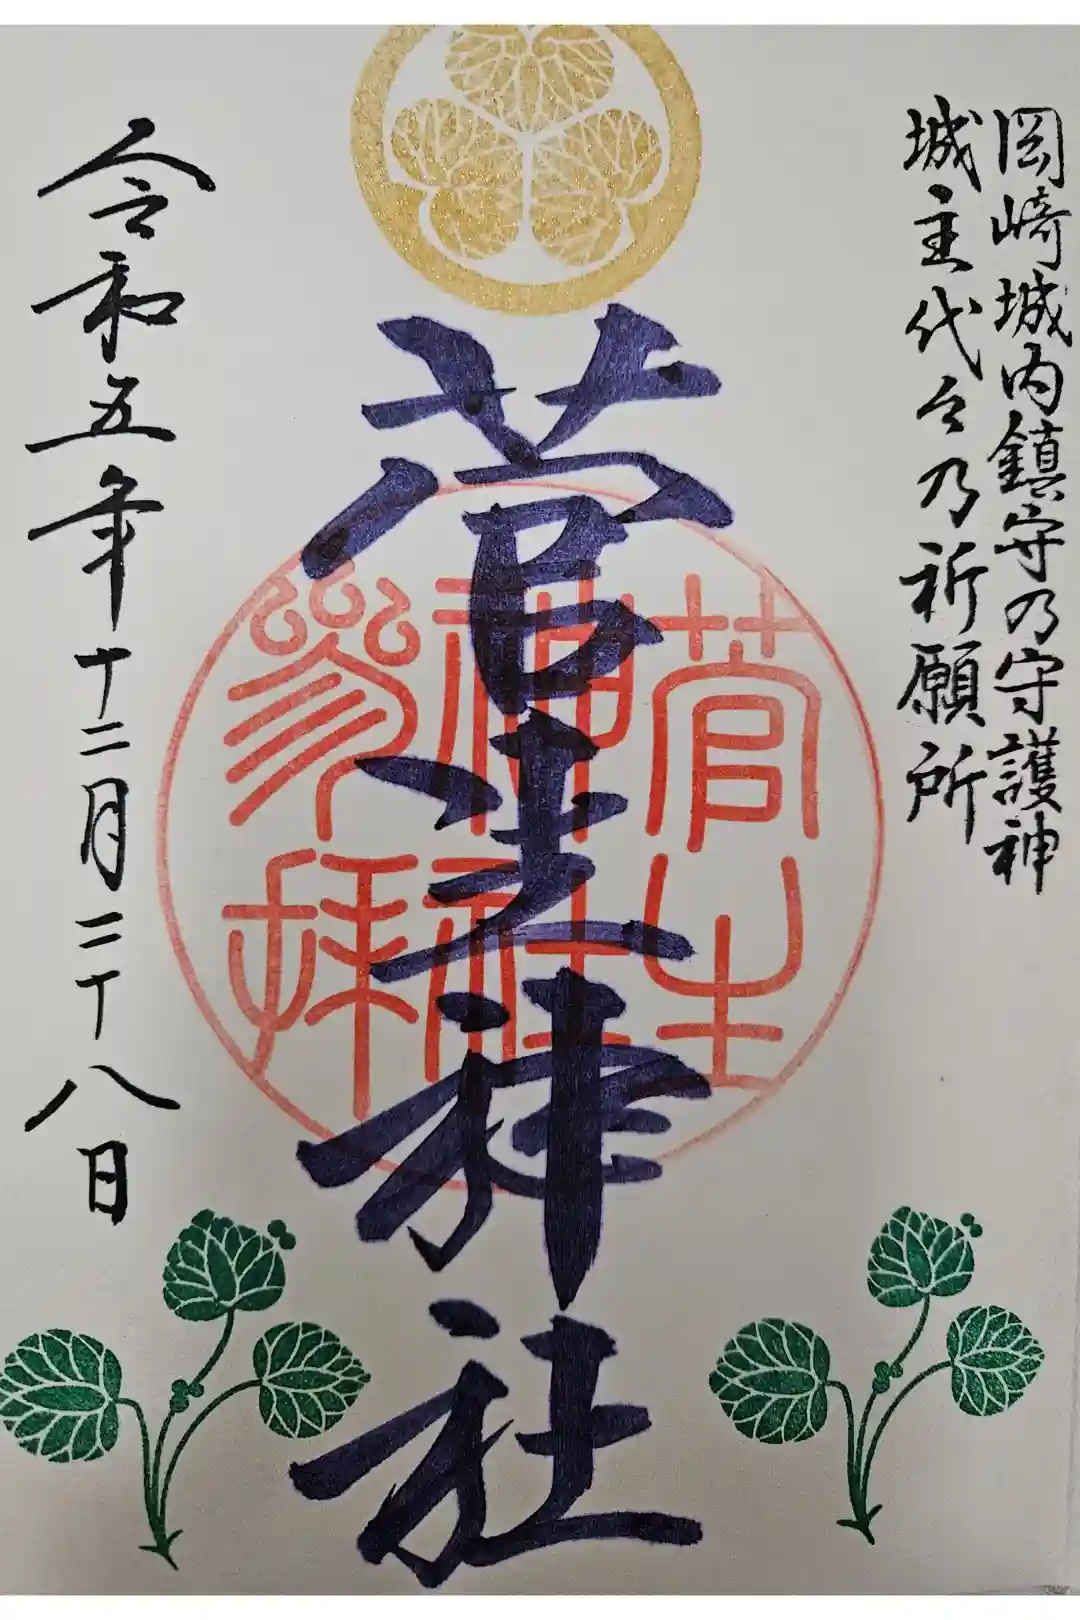 岡崎城内鎮守乃守護神
城主代々乃祈願所
菅生神社
菅生
神社
参拝
令和五年十二月二十八日